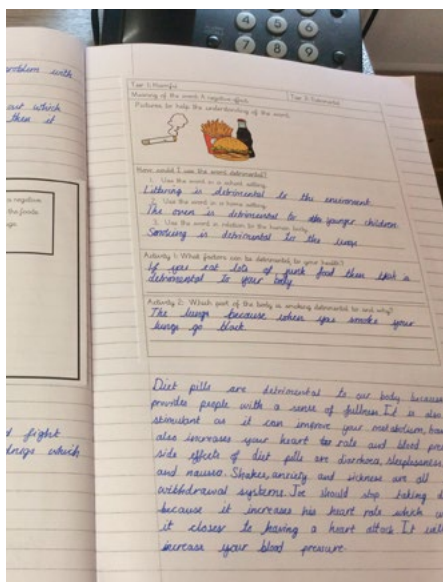 4 5 6
7 8 9
0
problem with
out which
then it
a negative
the foods
fight
drugs which
Tier 1: Harmful Tier 2: Detrimental
Meaning of the word: A negative effect.
Pictures to help the understanding of the word:
How could I use the word detrimental?
1. Use the word in a school setting.
Littering is detrimental to the enviroment
2. Use the word in a home setting.
The oven is detrimental to younger children
3. Use the word in relation to the human body.
Smoking is detrimental to the lungs
Activity 1: What factors can be detrimental to your health?
If you eat lots of junk food then that is
detrimental to your body.
Activity 2: Which part of the body is smoking detrimental to and why?
The lungs because when you smoke your
lungs go black
Diet pills are detrimental to our body because
provides people with a sense of fullness. It is also
stimulant as it can improve your metabolism,
also increases your heart rate and blood
side effects of diet pills are diarrhoea, sleeplessness
and nausea. Shakes, anxiety and sickness are all
withdrawal systems. Joe should stop taking
because it increases his heart rate which
it closer to having a heart attack. It
increase your blood pressure